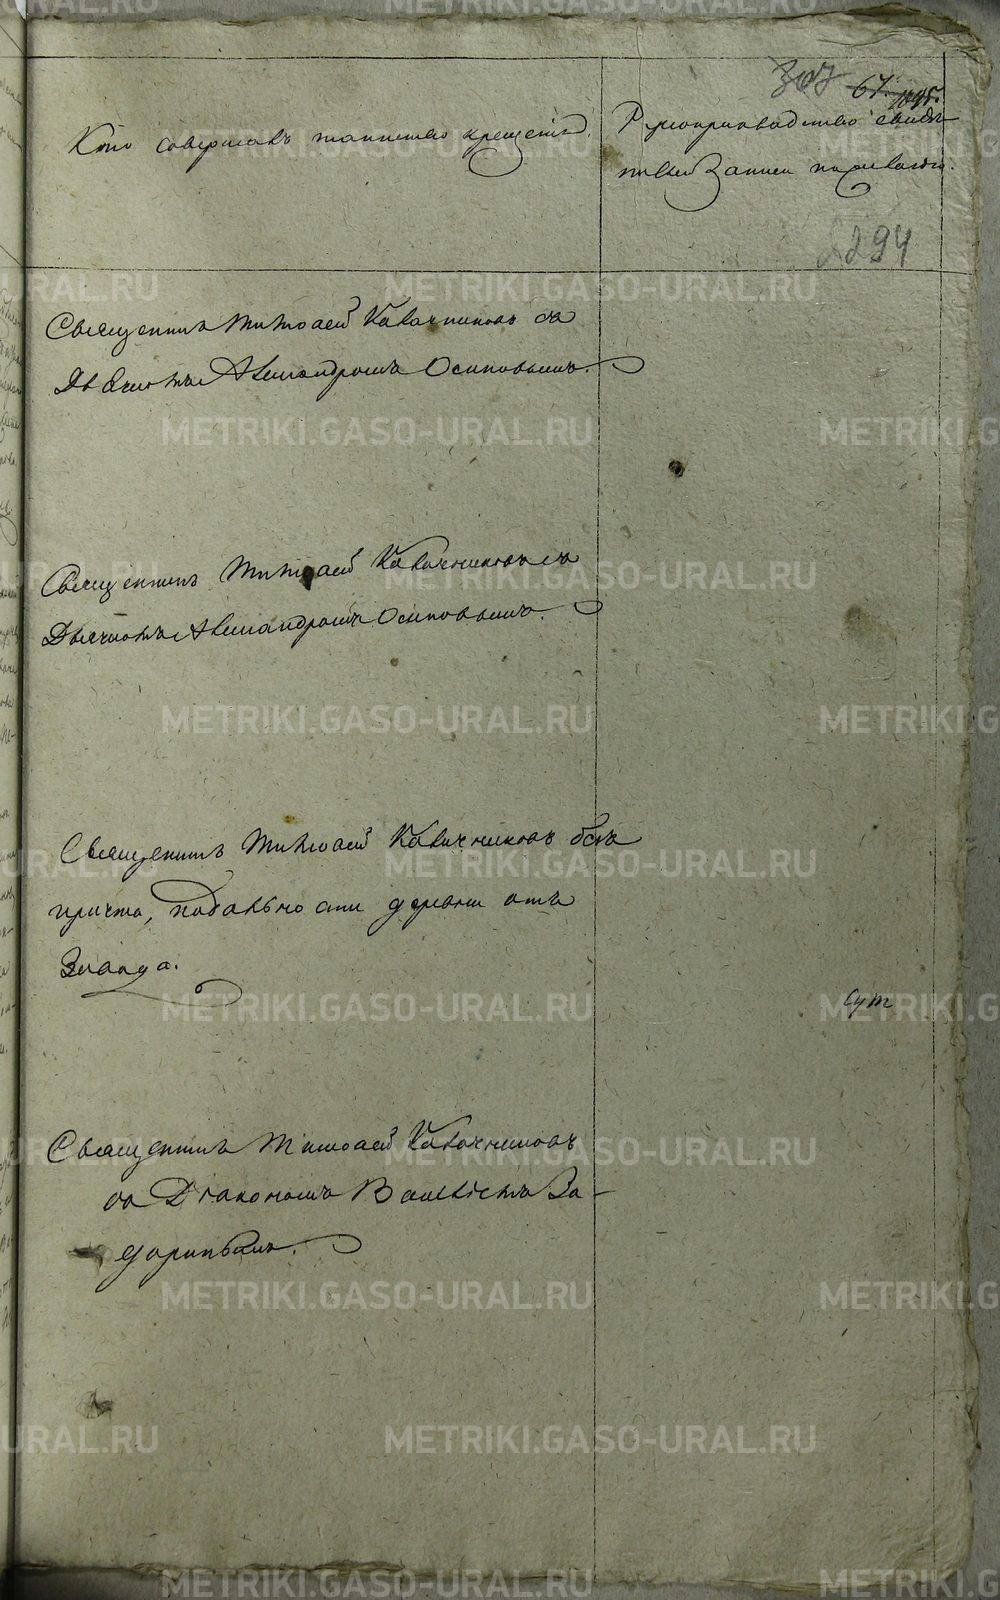 307 67. 1045.
Кто совершалъ таинство крещенія.
Рукоприкладство свидѣ-
телей записи по желанію.
294
Священникъ Тимоѳей Кавочниковъ съ
Дьячкомъ Александромъ Осиповымъ.
Священникъ Тимоѳей Кавочниковъ съ
Дьячкомъ Александромъ Осиповымъ.
Священникъ Тимоѳей Кавочниковъ безъ
причта, подальности деревни отъ
Завода.
сут
Священникъ Тимоѳей Кавочниковъ
съ Діакономъ Василіемъ За-
доринымъ.
METRIKI.GASO-URAL.RU